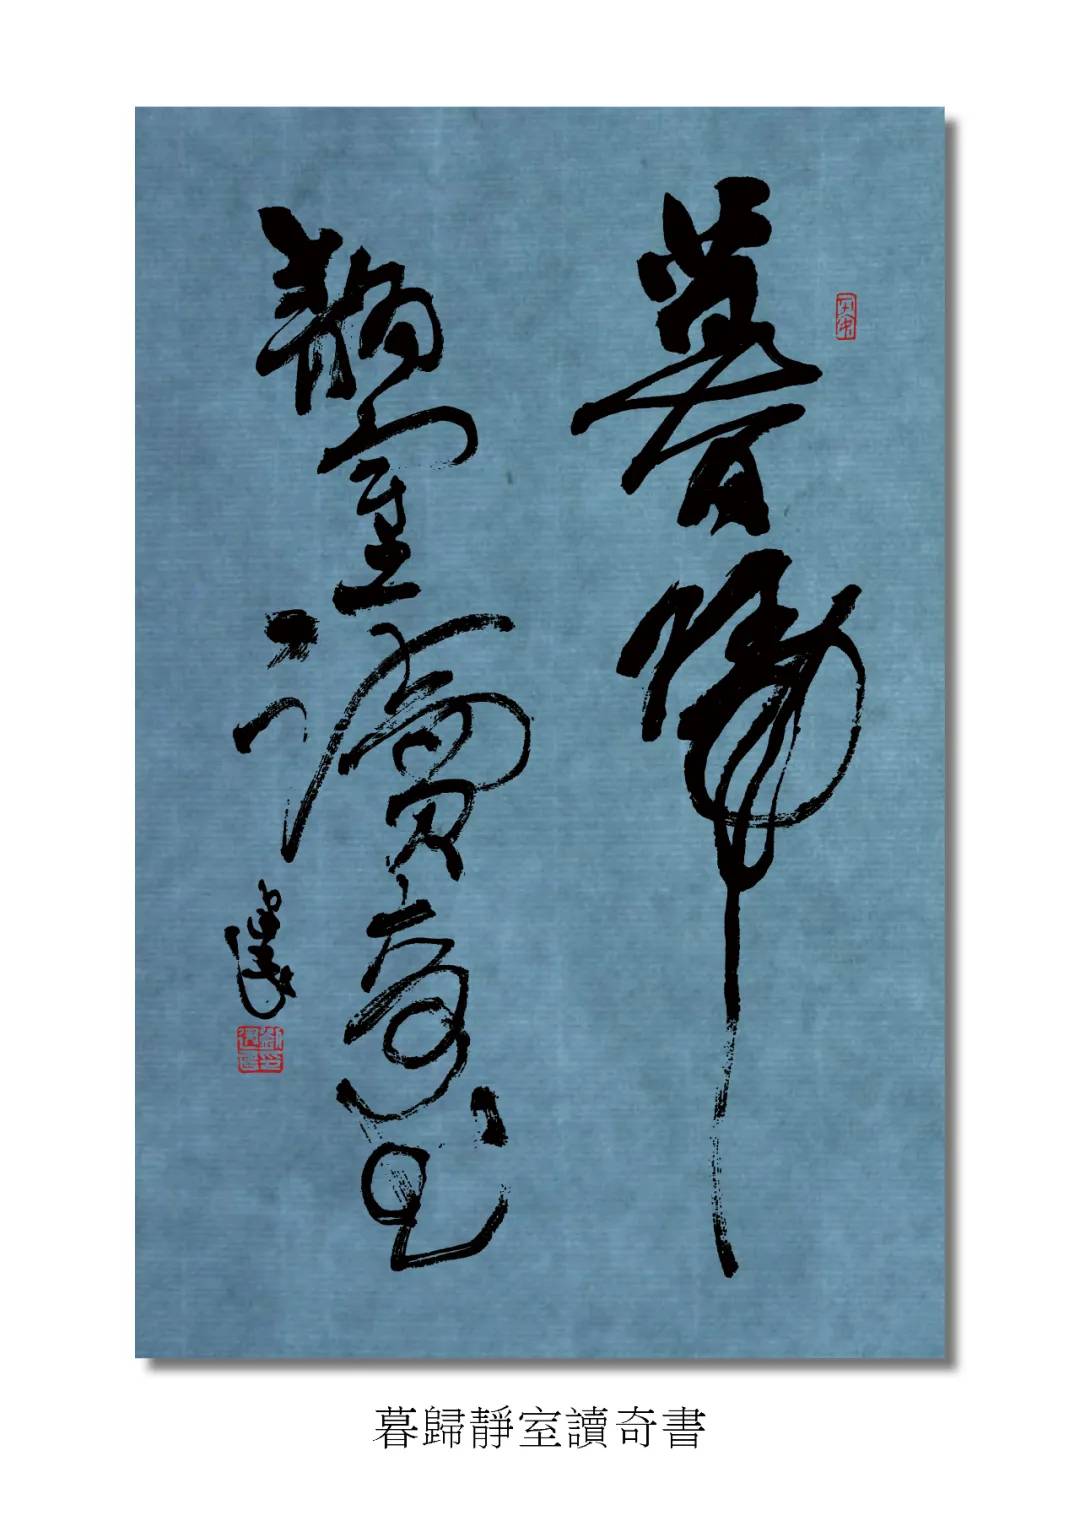 暮歸
靜室讀奇書
暮歸靜室讀奇書